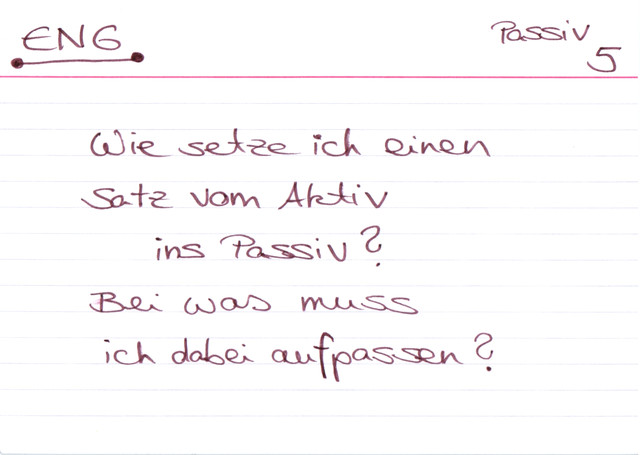 ENG
Passiv
5
Wie setze ich einen
Satz vom Aktiv
ins Passiv?
Bei was muss
ich dabei aufpassen?